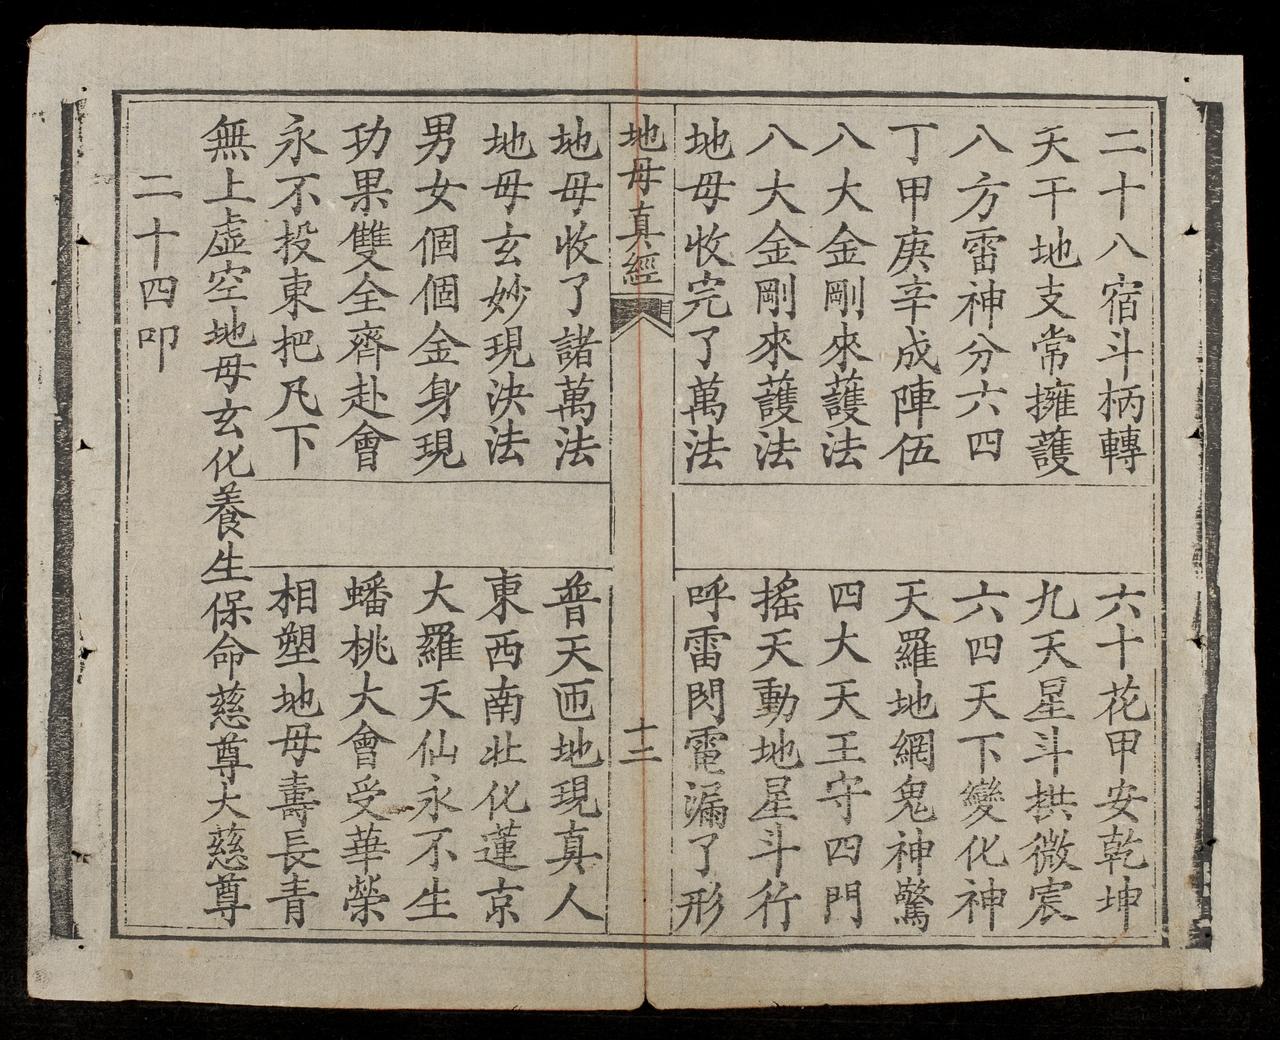 二十八宿斗柄轉 六十花甲安乾坤
天干地支常擁護 九天星斗拱微宸
八方雷神分六四 六四天下變化神
丁甲庚辛成陣伍 天羅地網鬼神驚
八大金剛來護法 四大天王守四門
八大金剛來護法 搖天動地星斗行
地母收完了萬法 呼雷閃電漏了形
地母真經 十二
地母收了諸萬法 普天匝地現真人
地母玄妙現決法 東西南北化蓮京
男女個個金身現 大羅天仙永不生
功果雙全齊赴會 蟠桃大會受華榮
永不投東把凡下 相塑地母壽長青
無上虛空地母玄化養生保命慈尊大慈尊
二十四叩